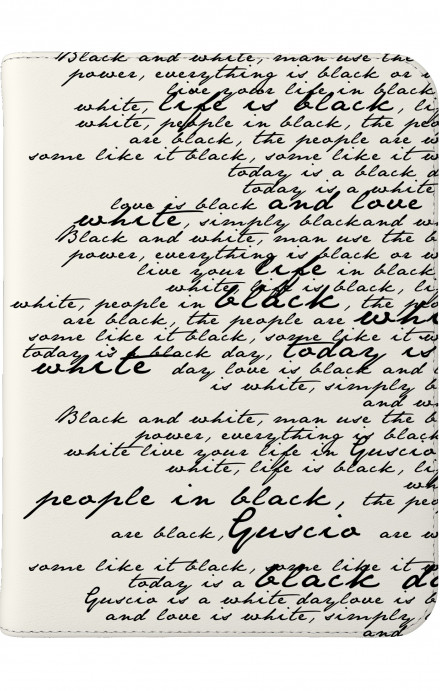 Black and white, man use the
power, everything is black or
live your life in black
white, life is black,
white, people in black, the
are black, the people are
some like it black, some like it
today is a black
today is a white
love is black and love
white, simply blackand
Black and white, man use the
power, everything is black or
live your life in black
white, life is black,
white, people in black, the
are black, the people are
some like it black, some like it
today is a black day, today is
white day love is black and
is white, simply
and
Black and white, man use the
power, everything is black
white live your life in Guscio
white, life is black,
people in black, the
are black, Guscio are
some like it black, some like it
today is a black
Guscio is a white daylove is
and love is white, simply
and